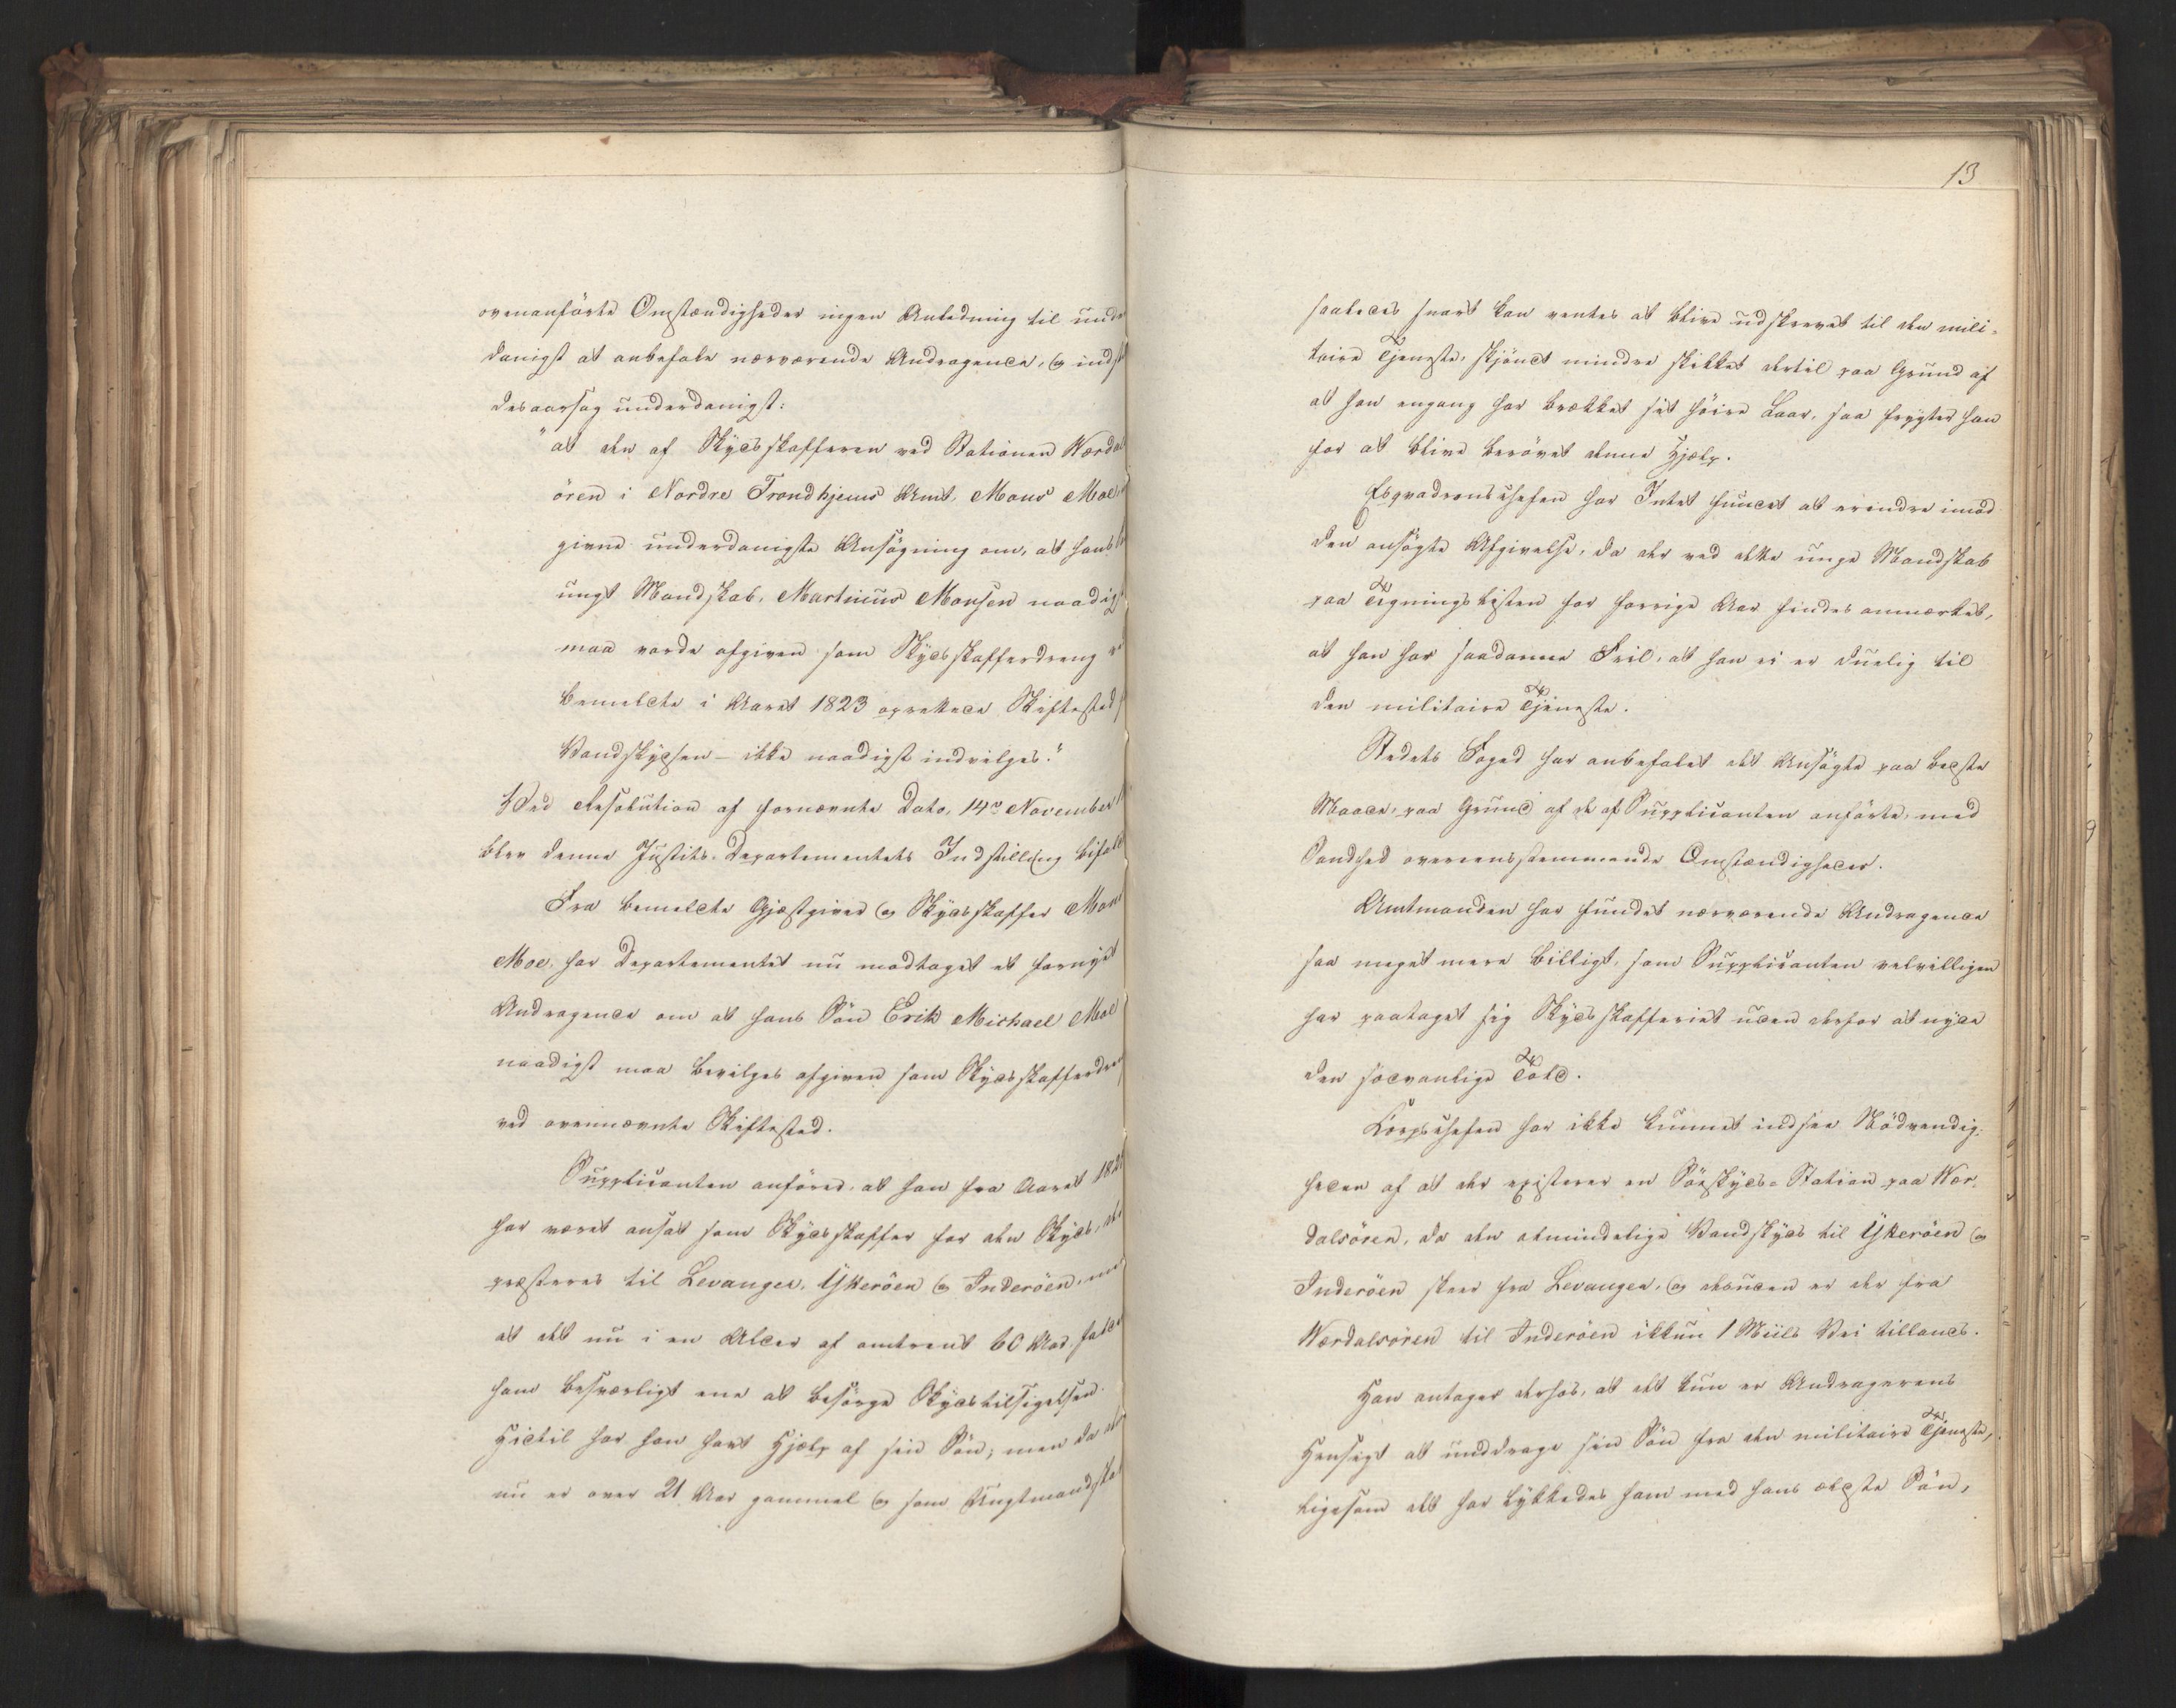 ovenanförte Omstændigheder ingen Anledning til unde
danigst at anbefale nærværende Andragende, og indst
desaarsag underdanigst:
"at den af Skydsskafferen ved Stationen Værdal
ören i Nordre Trondhjems Amt, Mons Moe,
givne underdanigste Ansögning om, at hans
ungt Mandskab, Martinus Monsen naadigst
maa vorde afgiven som Skydsskafferdreng ve
bemeldte i Aaret 1823 oprettede Skiftested
Vandskydsen – ikke naadigst indvilges."
Ved Resolution af fornævnte Dato, 14de November
blev denne Justits-Departementets Indstilling bifalt
Fra bemeldte Gjæstgiver og Skydsskaffer Mons
Moe, har Departementet nu modtaget et fornyet
Andragende om at hans Sön Erik Michael Moe
naadigst maa bevilges afgiven som Skydsskafferdren
ved ovennævnte Skiftested.
Supplicanten anförer, at han fra Aaret 182
har været ansat som Skydsskaffer for den Skyds, der
præsteres til Levanger, Ytteröen og Inderöen, men
at det nu i en Alder af omtrent 60 Aar falder
ham besværligt ene at besörge Skydstilsigelsen.
Hidtil har han havt Hjælp af sin Sön; men da den
nu er over 21 Aar gammel og som Ungtmandskab
13
saaledes snart kan ventes at blive udskrevet til den mili-
taire Tjeneste, skjöndt mindre skikket dertil paa Grund af
at han engang har brækket sit höire Laar, saa frygter han
for at blive berövet denne Hjælp.
Esqvadronschefen har Intet fundet at erindre imod
den ansögte Afgivelse, da der ved dette unge Mandskab
paa Tegningslisten for forrige Aar findes anmærket,
at han har saadanne Feil, at han ei er duelig til
den militaire Tjeneste.
Stedets Foged har anbefalet det Ansögte paa bedste
Maade, paa Grund af de af Supplicanten anförte, med
Sandhed overeensstemmende Omstændigheder.
Amtmanden har fundet nærværende Andragende
saa meget mere billigt, som Supplicanten velvilligen
har paataget sig Skydsskafferiet uden derfor at nyde
den sædvanlige Told.
Corpschefen har ikke kunnet indsee Nödvendig-
heden af at der existerer en Söeskyds-Station paa Vær-
dalsören, da den almindelige Vandskyds til Ytteröen og
Inderöen skeer fra Levanger, og desuden er der fra
Værdalsören til Inderöen ikkun 1 Miils Vei tillands.
Han antager derhos, at det kun er Andragerens
Hensigt at unddrage sin Sön fra den militaire Tjeneste,
ligesom det har lykkedes ham med hans ældste Sön,